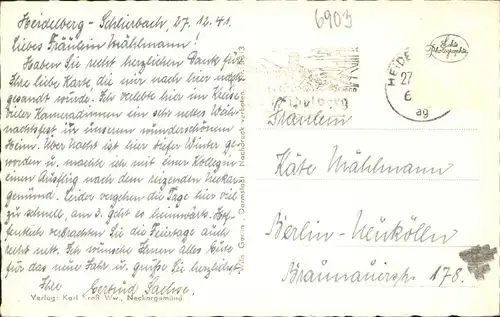 Heidelberg-Schlierbach, 27.12.41.
Liebes Fräulein Mählmann!
Haben Sie recht herzlichen Dank für
Ihre liebe Karte, die mir nach hier nach-
gesandt wurde. Ich verlebte hier im Kreise
vieler Kameradinnen ein sehr nettes Weih-
nachtsfest in unserem wunderschönen
Heim. Über Nacht ist hier tiefer Winter ge-
worden u. machte ich mit einer Kollegin
einen Ausflug nach dem reizenden Neckar-
gemünd. Leider vergehen die Tage hier viel
zu schnell, am 3. geht es heimwärts. Hof-
fentlich verbrachten Sie die Feiertage auch
recht nett. Ich wünsche Ihnen alles Gute
für das neue Jahr u. grüße Sie herzlichst
Ihre Gertrud Sachse.
Verlag: Karl Wv., Neckargemünd
Darmstadt Nachdruck verboten
6903
Heidelberg
HEIDE
27
ag
Echte
Photographie
Fräulein
Käte Mählmann
Berlin-Neukölln
Braunauerstr. 178.